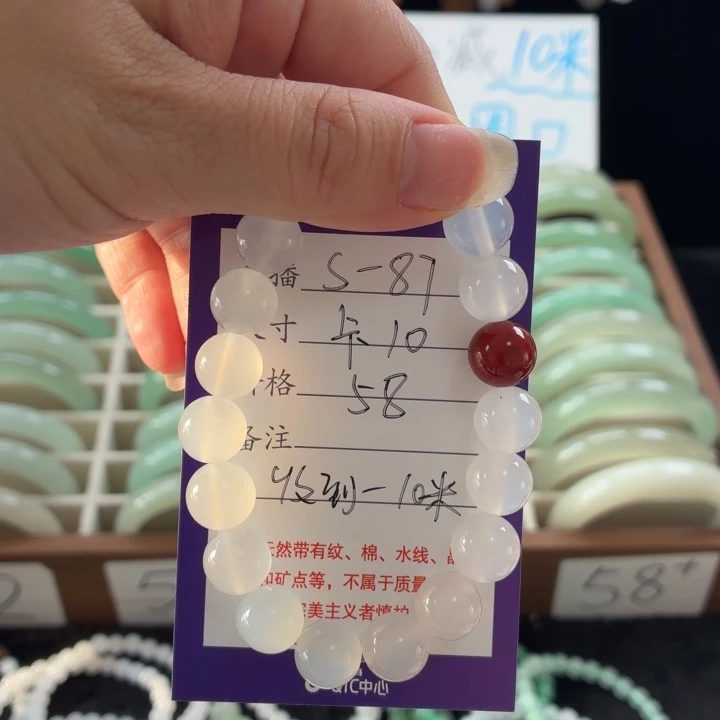 减10米
播 S-87
寸 卡10
格 58
备注
收到-10米
天然带有纹、棉、水线、
和矿点等，不属于质量
完美主义者慎拍
中心
58+